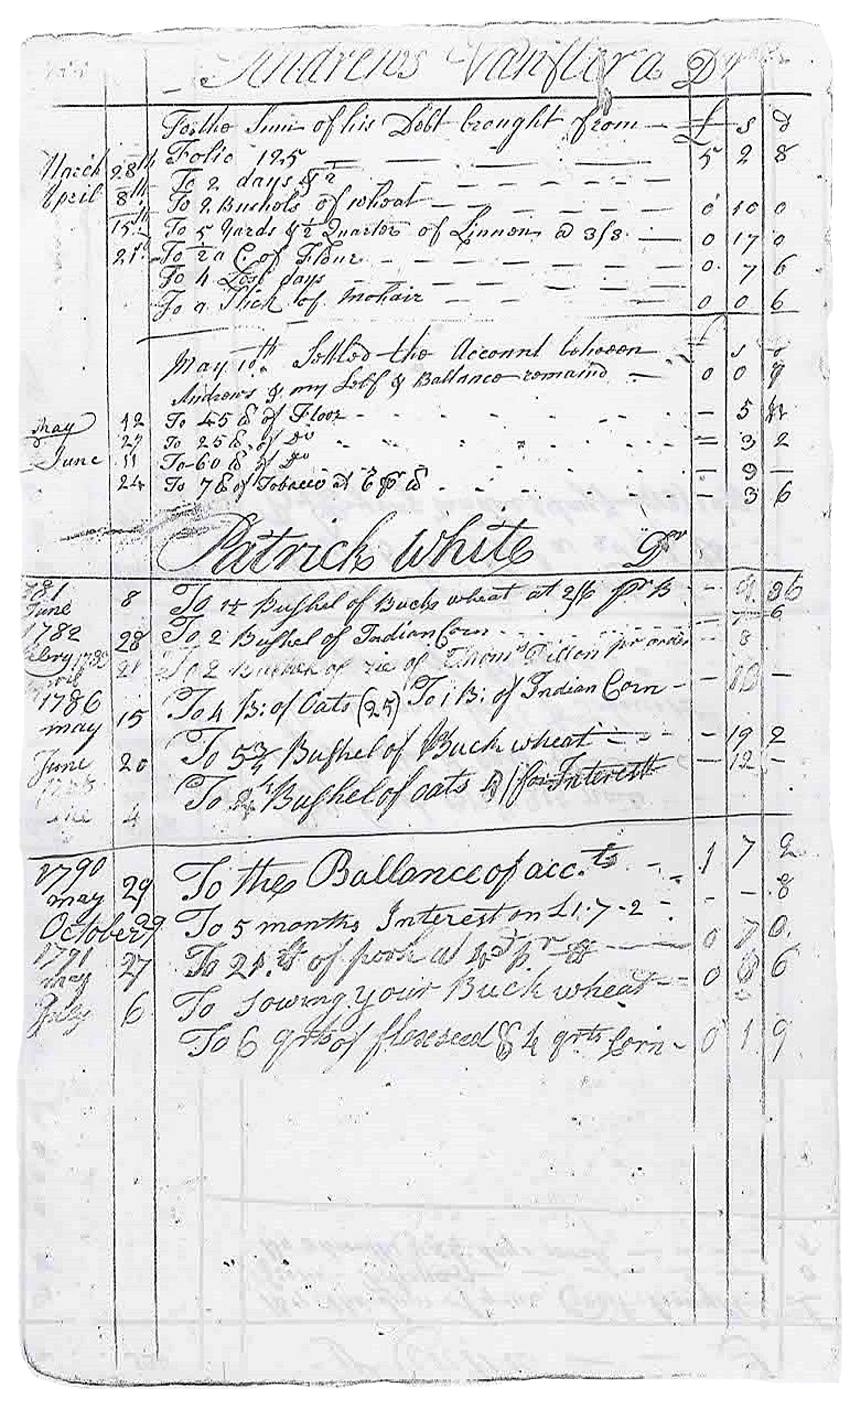 Andrews Vanflera Dr
To the Sum of his Debt brought from — £ s d
March 28th Folio 125 — — — 5 2 8
To 2 days & ½ — — —
April 8th To 2 Bushels of wheat — — — 0 10 0
15th To 5 Yards & ½ Quarter of Linnen @ 3/3 — 0 17 0
21st To ½ a C. of Flour — — — 0 7 6
To 4 Lost days — — —
To a Stick of Mohair — — — 0 0 6
May 10th Settled the Account between £ s d
Andrews & my Self & Ballance remaind — 0 0
May 12 To 45 lb of Floor - - - — 5
27 To 25 lb of Do - - - = 3 2
June 11 To 60 lb of Do - - - — 9 —
24 To 7 lb of Tobacco at 6 pr lb - - - — 3 6
Patrick White Dr
1781
June 8 To Bushel of Buckwheat at 2/6 pr B -
1782
28 To 2 Bushel of Indian Corn - - - 7 6
21 To 2 Bushel of rie of Thoms Dillon pr order 8
1786
may 15 To 4 B: of Oats (25) To 1 B: of Indian Corn - - 10 —
June 20 To 5¾ Bushel of Buck wheat - - - 19 2
4 To Bushel of oats for Interest — 12 -
1790
may 29 To the Ballance of acc.ts - - 1 7 2
October 29 To 5 months Interest on £1-7-2 - - - 8
1791
may 27 To 21 lb of pork at 4d pr lb — 0 7 0
July 6 To Sowing your Buck wheat - - 0 6 6
To 6 qrts of flaxseed & 4 qrts Corn - 0 1 9